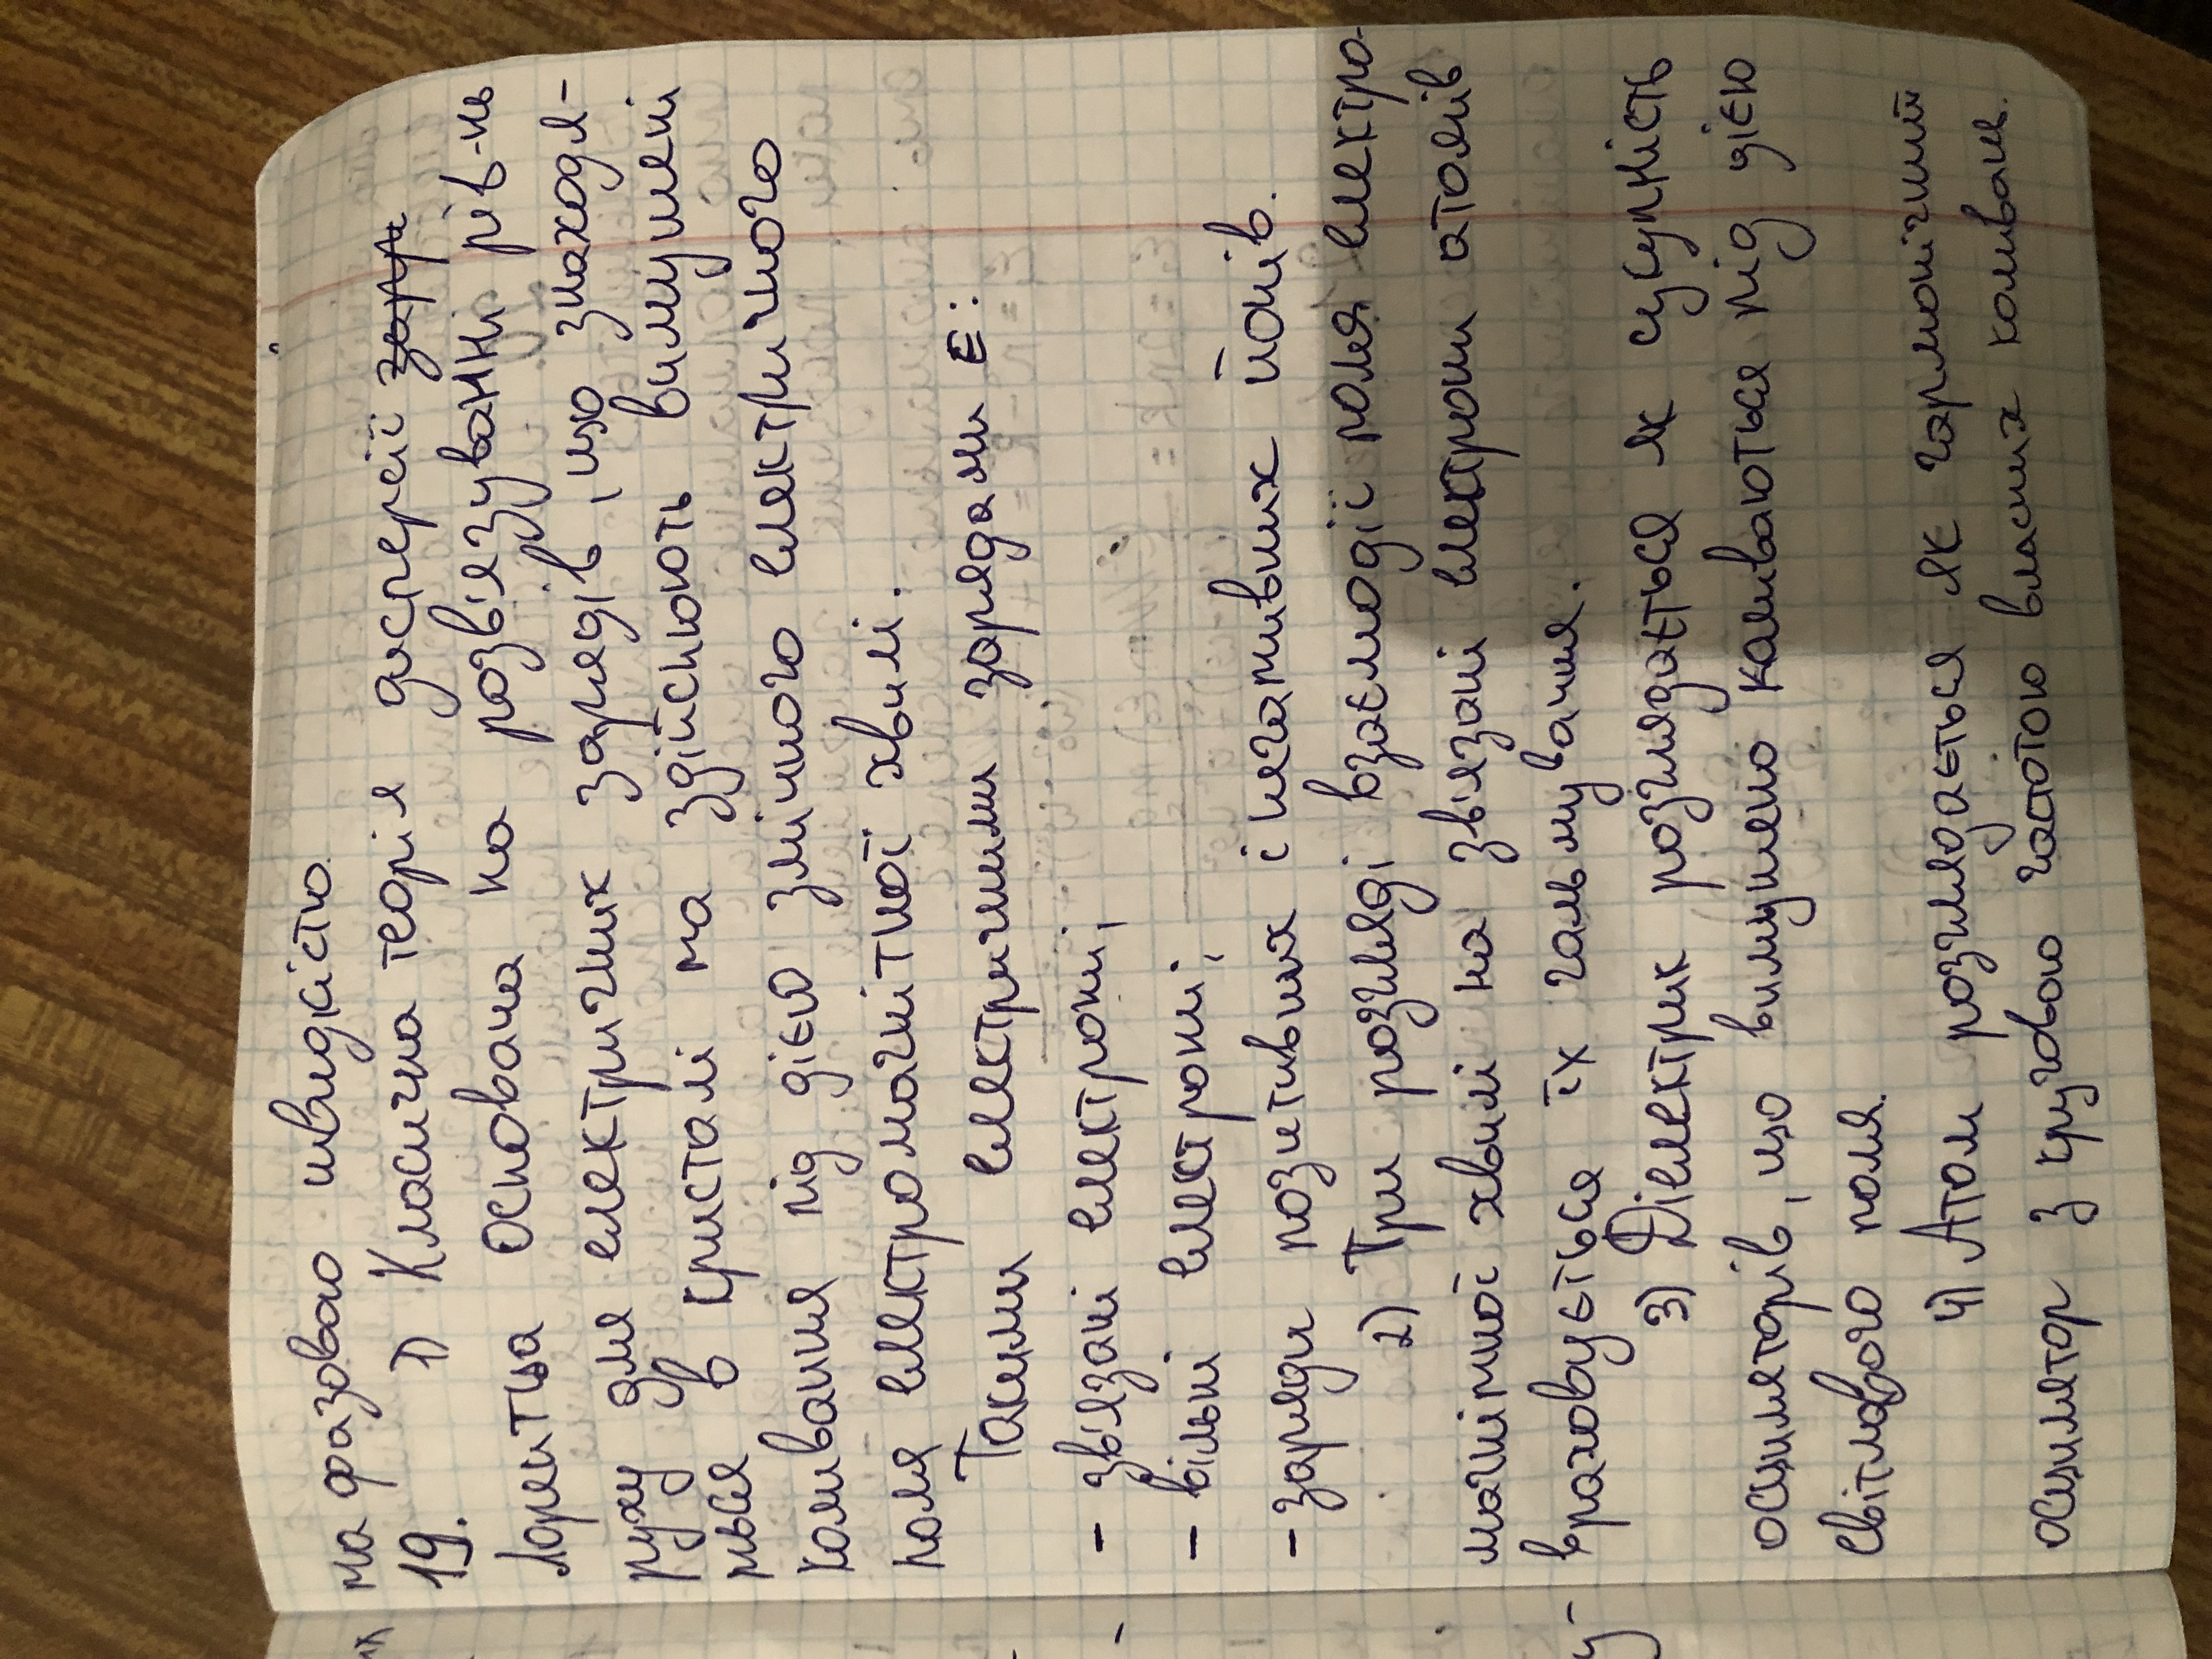 та фазовою швидкістю.
19. 1) Класична теорія дисперсії
Лорентца основана на розв'язуванні рів-нь
руху для електричних зарядів, що знаходя-
ться в кристалі та здійснюють вимушені
коливання під дією змінного електричного
поля електромагнітної хвилі.
Такими електричними зарядами є:
- зв'язані електрони;
- вільні електрони;
- заряди позитивних і негативних йонів.
2) При розгляді взаємодії поля електро-
магнітної хвилі на зв'язані електрони атомів
враховується їх гальмування.
3) Діелектрик розглядається як сукупність
осциляторів, що вимушено коливаються під дією
світлового поля.
4) Атом розглядається як гармонічний
осцилятор з круговою частотою власних коливань.